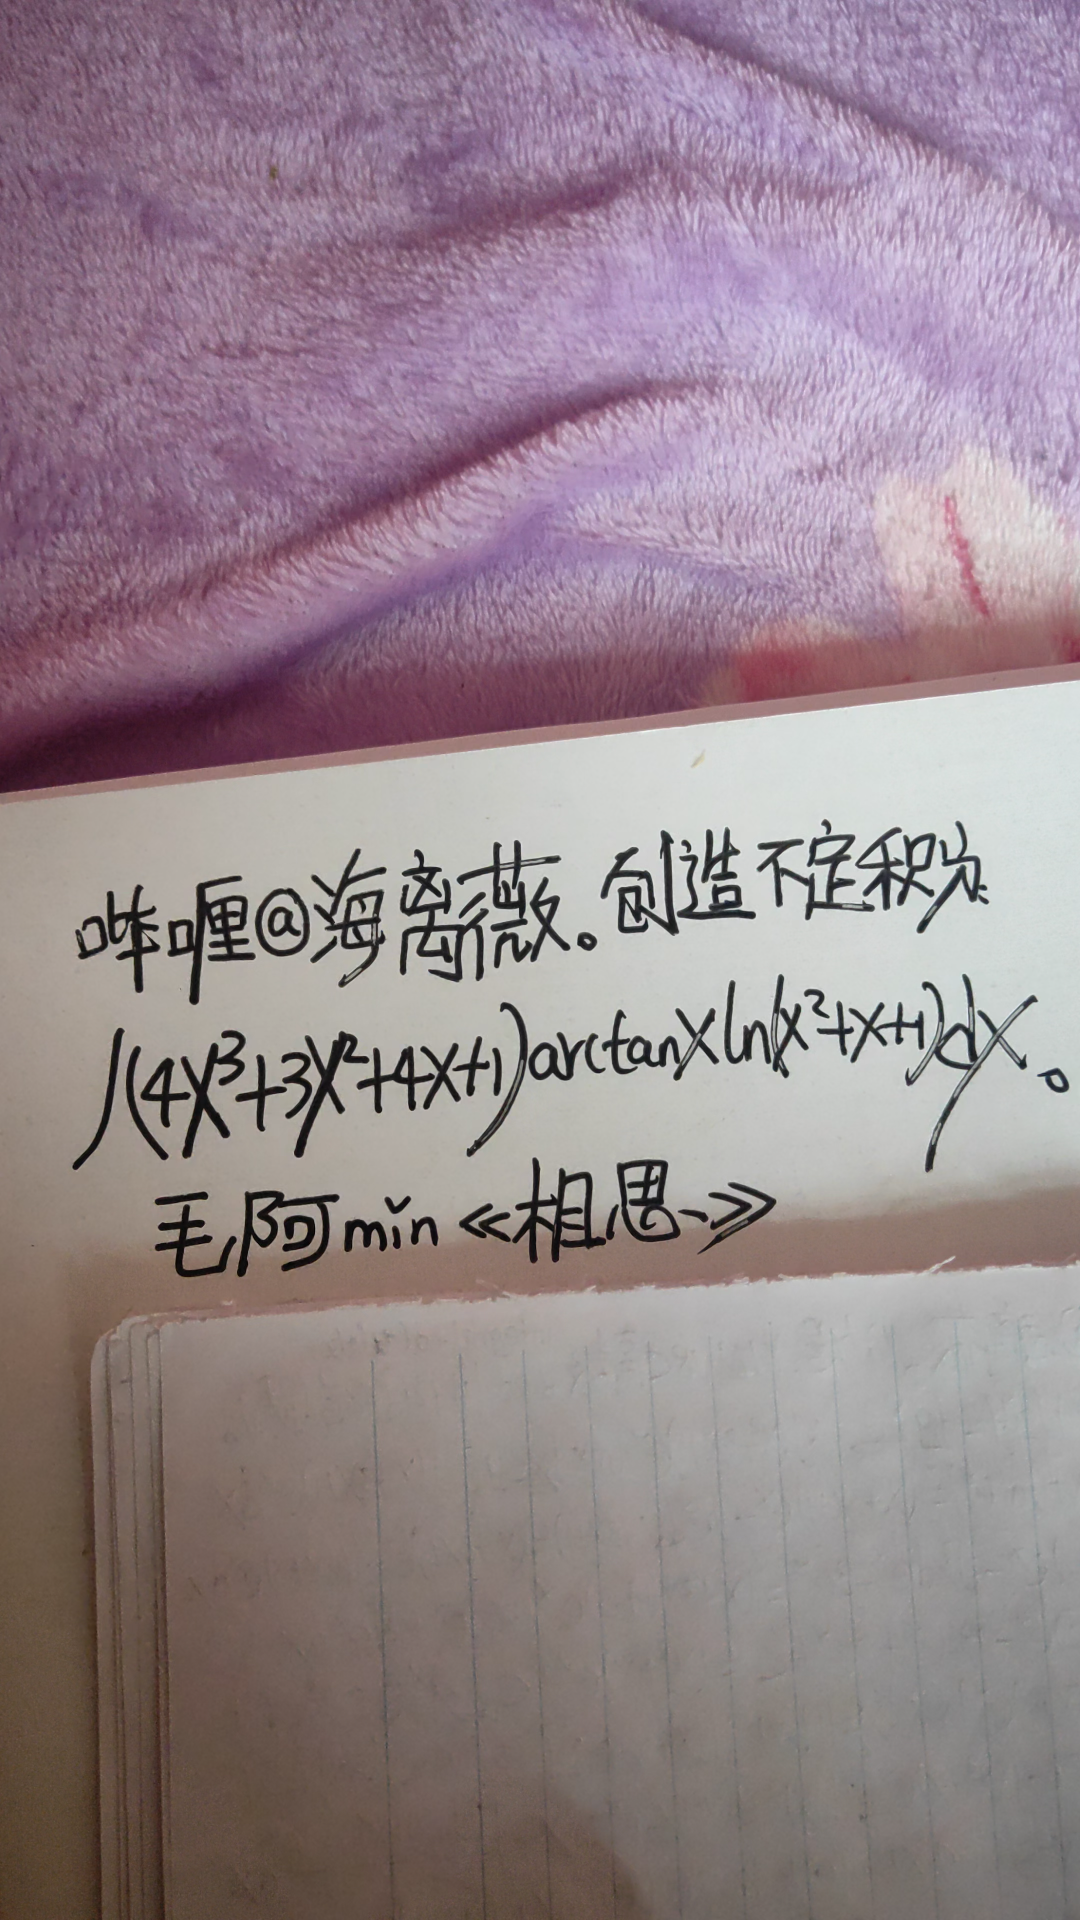 哔喱@海离薇。创造不定积分
∫(4x³+3x²+4x+1)arctanxln(x²+x+1)dx。
毛阿mǐn《相思》